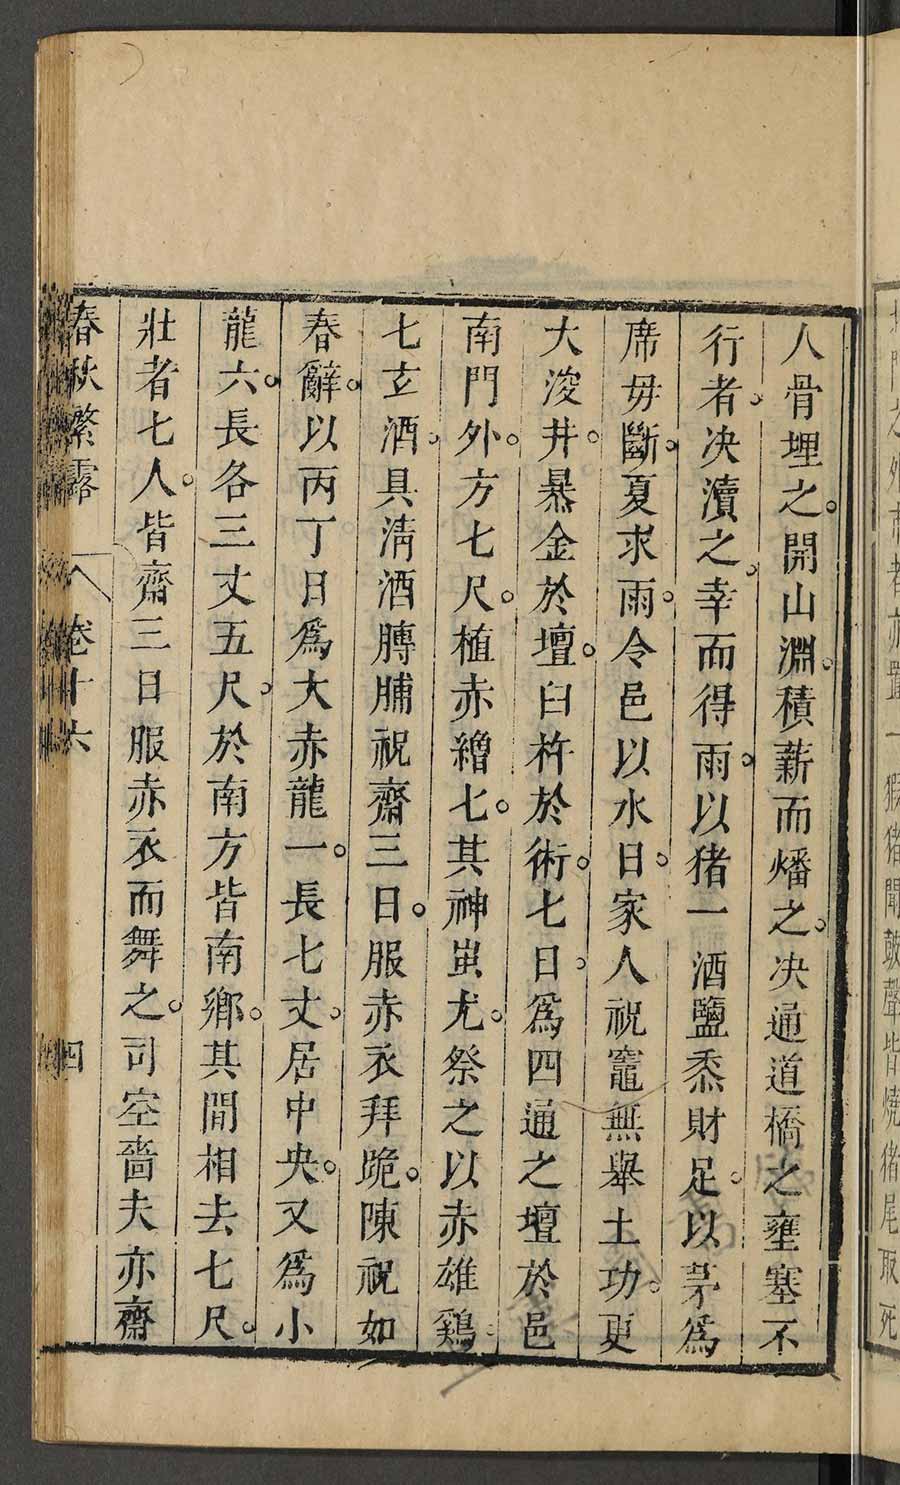 門之外市者亦置一猳猪聞鼓聲皆燒猪尾取死
人骨埋之。開山淵。積薪而燔之。决通道橋之壅塞不
行者。决瀆之。幸而得雨。以猪一酒鹽黍財足。以茅爲
席毋斷。夏求雨。令邑以水日。家人祝竈無舉土功。更
大浚井。暴金於壇。臼杵於術。七日。爲四通之壇於邑
南門外。方七尺。植赤繒七。其神蚩尤。祭之以赤雄鷄。
七玄酒。具清酒膊脯祝齋三日。服赤衣拜跪。陳祝如
春辭。以丙丁日爲大赤龍一。長七丈。居中央。又爲小
龍六。長各三丈五尺。於南方皆南鄉。其間相去七尺。
壯者七人。皆齋三日服赤衣而舞之。司空嗇夫亦齋
春秋繁露 卷十六 四